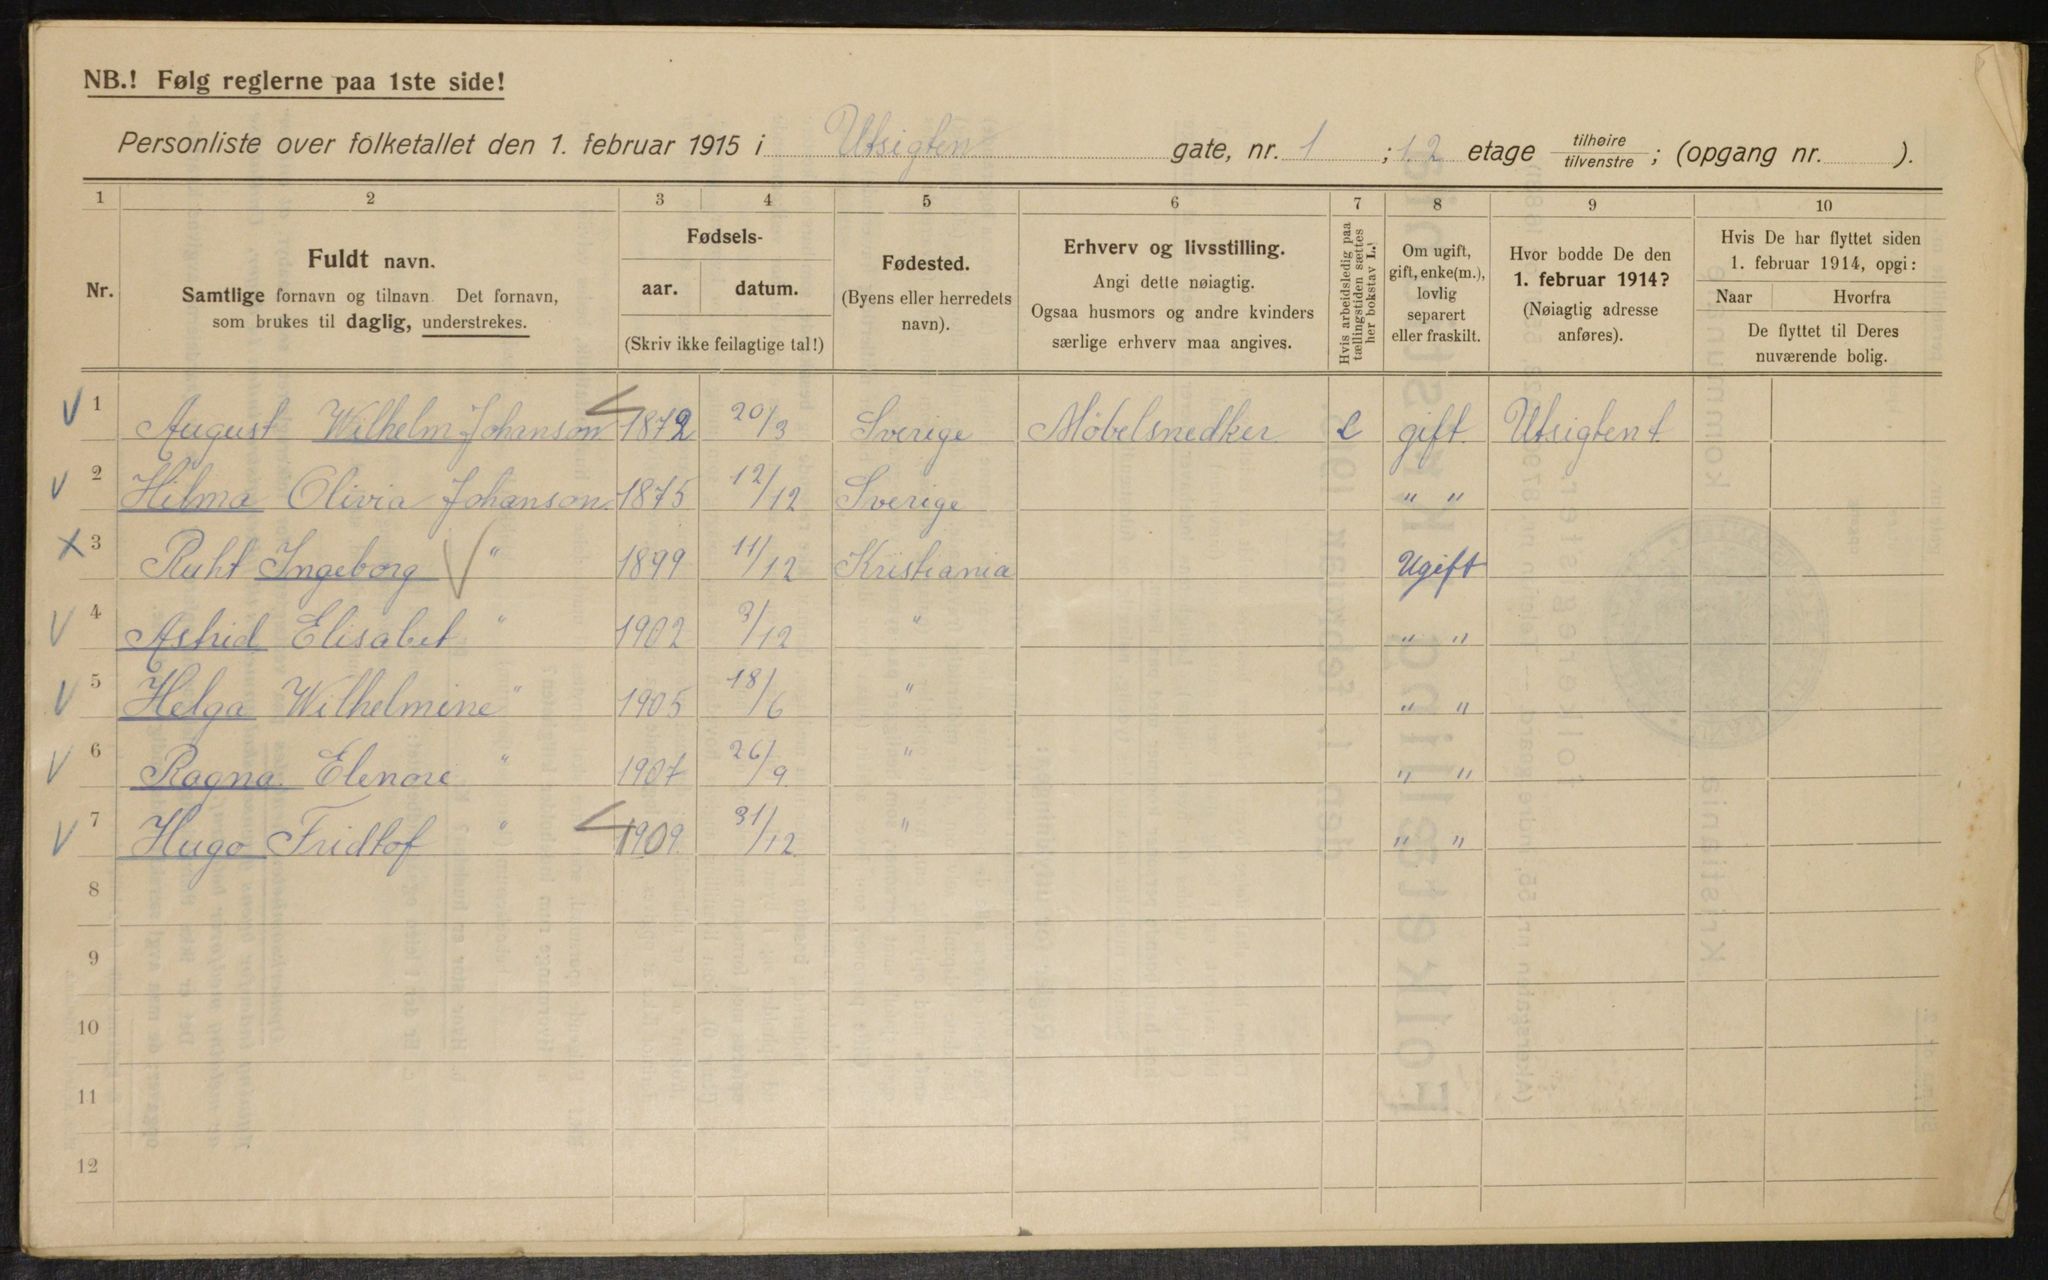 NB.! Følg reglerne paa 1ste side!
Personliste over folketallet den 1. februar 1915 i Utsigten gate, nr. 1 ; 1. 2 etage tilhøire tilvenstre ; (opgang nr. ).
1 2 3 4 5 6 7 8 9 10
Nr.
Fuldt navn.
Samtlige fornavn og tilnavn. Det fornavn,
som brukes til daglig, understrekes.
Fødsels-
aar. datum.
(Skriv ikke feilagtige tal!)
Fødested.
(Byens eller herredets
navn).
Erhverv og livsstilling.
Angi dette nøiagtig.
Ogsaa husmors og andre kvinders
særlige erhverv maa angives.
Hvis arbeidsledig paa
tællingstiden sættes
her bokstav L.!
Om ugift,
gift, enke(m.),
lovlig
separert
eller fraskilt.
Hvor bodde De den
1. februar 1914?
(Nøiagtig adresse
anføres).
Hvis De har flyttet siden
1. februar 1914, opgi:
Naar Hvorfra
De flyttet til Deres
nuværende bolig.
1 August Wilhelm Johanson 1872 20/3 Sverige Møbelsnedker L gift Utsigten 1.
2 Hilma Olivia Johanson 1875 12/12 Sverige " "
3 Ruht Ingeborg " 1899 11/12 Kristiania Ugift
4 Astrid Elisabet " 1902 3/12 " " "
5 Helga Wilhelmine " 1905 18/6 " " "
6 Ragna Elenore " 1907 26/9 " " "
7 Hugo Fridtof " 1909 31/12 " " "
8
9
10
11
12